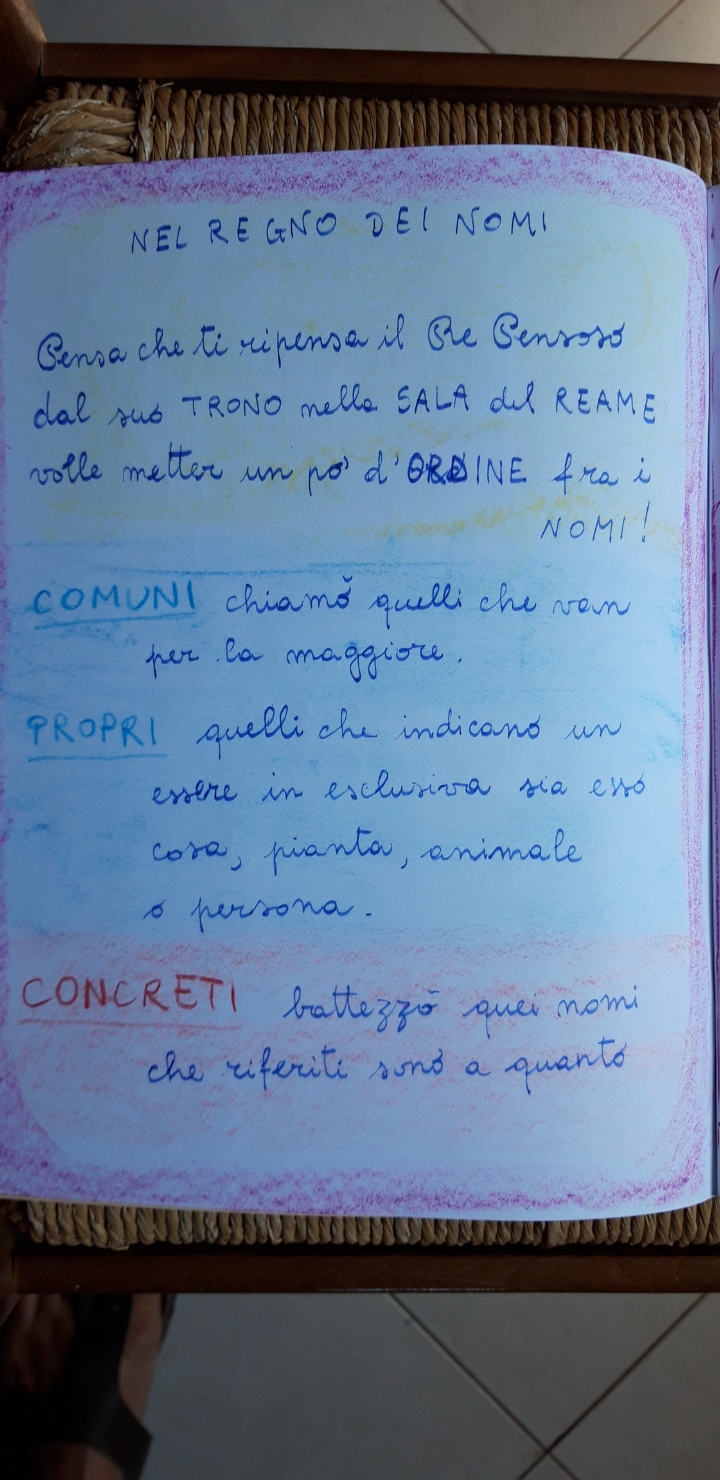 NEL REGNO DEI NOMI
Pensa che ti ripensa il Re Pensoso
dal suo TRONO nella SALA del REAME
volle metter un po' d'ORDINE fra i
NOMI!
COMUNI chiamò quelli che van
per la maggiore.
PROPRI quelli che indicano un
essere in esclusiva sia esso
cosa, pianta, animale
o persona.
CONCRETI battezzò quei nomi
che riferiti sono a quanto